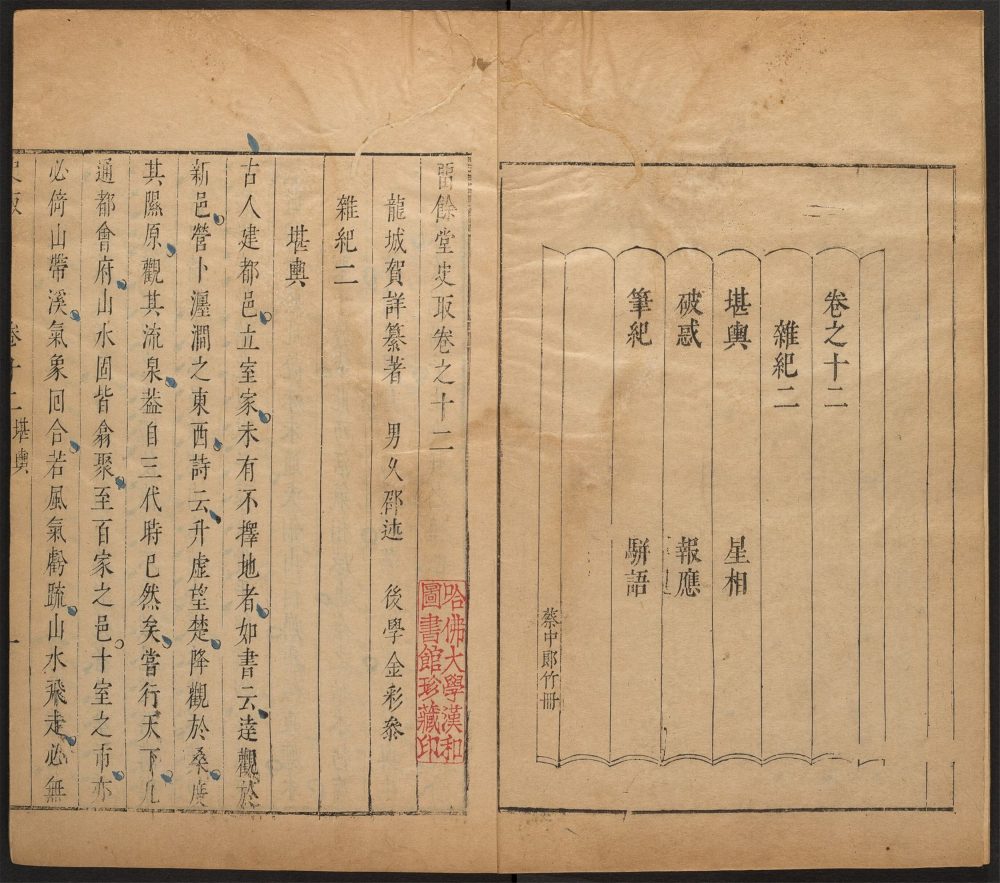 卷之十二
雜紀二
堪輿　星相
破惑　報應
筆紀　駢語
蔡中郎竹冊
留餘堂史取卷之十二
龍城賀詳纂著　男久邵述　後學金彩叅
哈佛大學漢和圖書館珍藏印
雜紀二
堪輿
古人建都邑立室家未有不擇地者如書云達觀於
新邑營卜瀍澗之東西詩云升虛望楚降觀於桑度
其隰原觀其流泉葢自三代時已然矣嘗行天下凡
通都會府山水固皆翕聚至百家之邑十室之市亦
必倚山帶溪氣象回合若風氣虧疏山水飛走必無
史取　卷十二堪輿　一